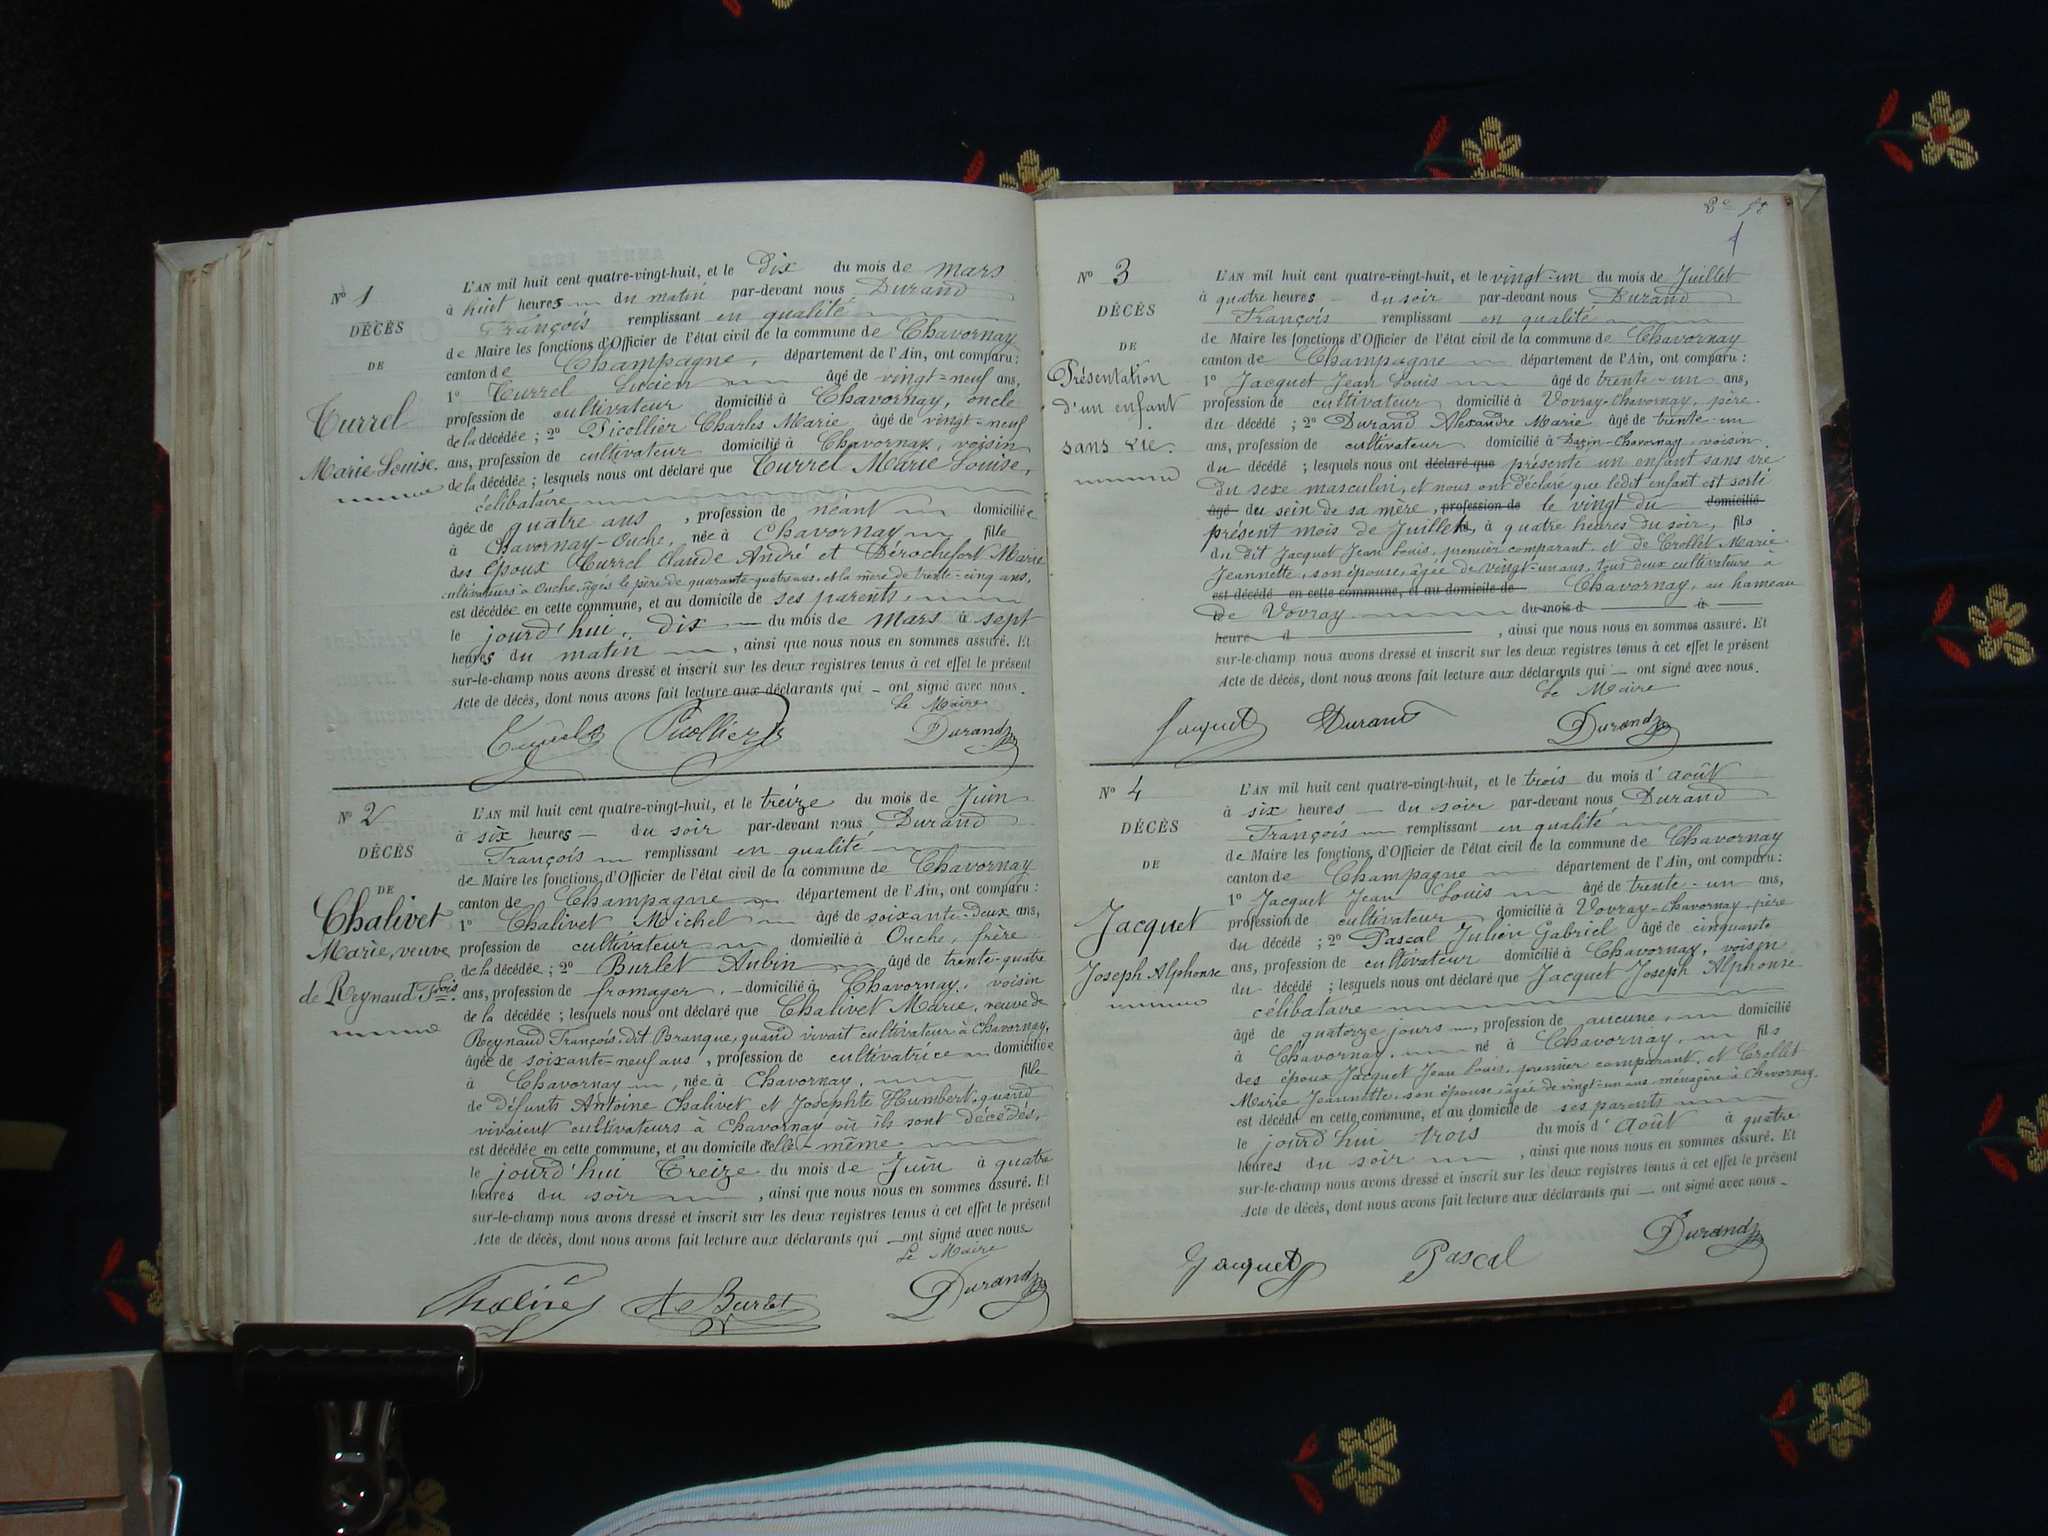 N° 1
DÉCÈS
DE
Turrel
Marie Louise.
L'AN mil huit cent quatre-vingt-huit, et le dix du mois de mars
à huit heures du matin par-devant nous Durand
François remplissant en qualité
de Maire les fonctions d'Officier de l'état civil de la commune de Chavornay
canton de Champagne, département de l'Ain, ont comparu :
1° Turrel Lucien âgé de vingt-neuf ans,
profession de cultivateur domicilié à Chavornay, oncle
de la décédée ; 2° Picollier Charles Marie âgé de vingt-neuf
ans, profession de cultivateur domicilié à Chavornay, voisin
de la décédée ; lesquels nous ont déclaré que Turrel Marie Louise,
célibataire
âgée de quatre ans, profession de néant domiciliée
à Chavornay-Ouche, née à Chavornay fille
des époux Turrel Claude André et Dérochefort Marie
cultivateurs à Ouche, âgés le père de quarante-quatre ans, et la mère de trente-cinq ans,
est décédée en cette commune, et au domicile de ses parents,
le jourd'hui, dix du mois de mars à sept
heures du matin, ainsi que nous nous en sommes assuré. Et
sur-le-champ nous avons dressé et inscrit sur les deux registres tenus à cet effet le présent
Acte de décès, dont nous avons fait lecture aux déclarants qui ont signé avec nous.
Le Maire
Picollier Durand
N° 2
DÉCÈS
DE
Chalivet
Marie, veuve
de Reynaud Fçois.
L'AN mil huit cent quatre-vingt-huit, et le treize du mois de Juin
à six heures du soir par-devant nous Durand
François remplissant en qualité
de Maire les fonctions d'Officier de l'état civil de la commune de Chavornay
canton de Champagne département de l'Ain, ont comparu :
1° Chalivet Michel âgé de soixante-deux ans,
profession de cultivateur domicilié à Ouche, frère
de la décédée ; 2° Burlet Aubin âgé de trente-quatre
ans, profession de fromager, domicilié à Chavornay, voisin
de la décédée ; lesquels nous ont déclaré que Chalivet Marie, veuve de
Reynaud François, dit Branque, quand vivait cultivateur à Chavornay,
âgée de soixante-neuf ans, profession de cultivatrice domiciliée
à Chavornay, née à Chavornay, fille
de défunts Antoine Chalivet et Josephte Humbert, quand
vivaient cultivateurs à Chavornay où ils sont décédés,
est décédée en cette commune, et au domicile d'elle-même
le jourd'hui Treize du mois de Juin à quatre
heures du soir, ainsi que nous nous en sommes assuré. Et
sur-le-champ nous avons dressé et inscrit sur les deux registres tenus à cet effet le présent
Acte de décès, dont nous avons fait lecture aux déclarants qui ont signé avec nous
Le Maire
Chalivet A Burlet Durand
N° 3
DÉCÈS
DE
Présentation
d'un enfant
sans vie.
L'AN mil huit cent quatre-vingt-huit, et le vingt-un du mois de Juillet
à quatre heures du soir par-devant nous Durand
François remplissant en qualité
de Maire les fonctions d'Officier de l'état civil de la commune de Chavornay
canton de Champagne département de l'Ain, ont comparu :
1° Jacquet Jean Louis âgé de trente-un ans,
profession de cultivateur domicilié à Vovray-Chavornay, père
du décédé ; 2° Durand Alexandre Marie âgé de trente-un
ans, profession de cultivateur domicilié à Dazin-Chavornay, voisin
du décédé ; lesquels nous ont déclaré que présenté un enfant sans vie
du sexe masculin, et nous ont déclaré que ledit enfant est sorti
âgé du sein de sa mère, profession de le vingt du domicilié
présent mois de Juillet, à quatre heures du soir, fils
du dit Jacquet Jean Louis, premier comparant, et de Crollet Marie
Jeannette, son épouse, âgée de vingt-un ans, tous deux cultivateurs à
est décédé en cette commune, et au domicile de Chavornay, au hameau
de Vovray du mois d à
heure d, ainsi que nous nous en sommes assuré. Et
sur-le-champ nous avons dressé et inscrit sur les deux registres tenus à cet effet le présent
Acte de décès, dont nous avons fait lecture aux déclarants qui ont signé avec nous.
Le Maire
Jacquet Durand Durand
N° 4
DÉCÈS
DE
Jacquet
Joseph Alphonse
L'AN mil huit cent quatre-vingt-huit, et le trois du mois d'août
à six heures du soir par-devant nous Durand
François remplissant en qualité
de Maire les fonctions d'Officier de l'état civil de la commune de Chavornay
canton de Champagne département de l'Ain, ont comparu :
1° Jacquet Jean Louis âgé de trente-un ans,
profession de cultivateur domicilié à Vovray-Chavornay, père
du décédé ; 2° Pascal Julien Gabriel âgé de cinquante
ans, profession de cultivateur domicilié à Chavornay, voisin
du décédé ; lesquels nous ont déclaré que Jacquet Joseph Alphonse
célibataire
âgé de quatorze jours, profession de aucune, domicilié
à Chavornay, né à Chavornay, fils
des époux Jacquet Jean Louis, premier comparant, et Crollet
Marie Jeannette, son épouse, âgée de vingt-un ans, ménagère à Chavornay,
est décédé en cette commune, et au domicile de ses parents
le jourd'hui trois du mois d'août à quatre
heures du soir, ainsi que nous nous en sommes assuré. Et
sur-le-champ nous avons dressé et inscrit sur les deux registres tenus à cet effet le présent
Acte de décès, dont nous avons fait lecture aux déclarants qui ont signé avec nous
Jacquet Pascal Durand